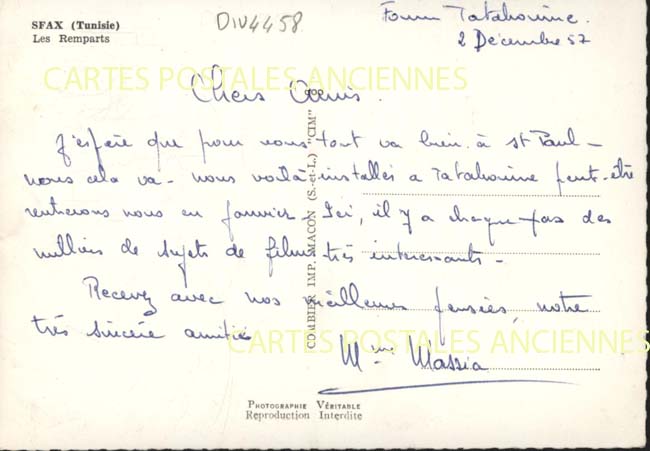 SFAX (Tunisie)
Les Remparts
DIV4458
Foum Tatahouine.
2 Décembre 57
CARTES POSTALES ANCIENNES
Chers Amis.
J'espère que pour vous tout va bien à St Paul -
nous cela va - nous voilà installés a Tatahouine peut-être
rentrerons nous en Janvier - Ici, il y a chaque pas des
milliers de sujets de films très interessants -
Recevez avec nos meilleures pensées, notre
très sincère amitié
CARTES POSTALES ANCIENNES
Mme Massia
COMBIER IMP. MACON (S.-et-L.) "CIM"
PHOTOGRAPHIE VÉRITABLE
Reproduction Interdite